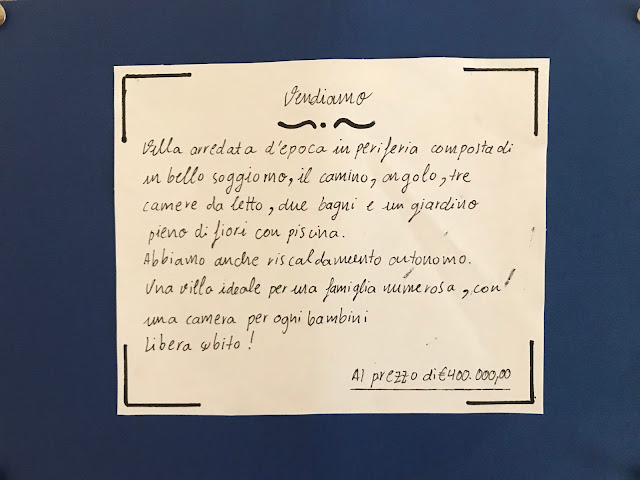 Vendiamo
Villa arredata d'epoca in periferia composta di
un bello soggiorno, il camino, angolo, tre
camere da letto, due bagni e un giardino
pieno di fiori con piscina.
Abbiamo anche riscaldamento autonomo.
Una villa ideale per una famiglia numerosa, con
una camera per ogni bambini
Libera subito!
Al prezzo di €400.000,00